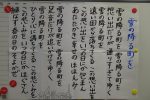 雪の降る町を
雪の降る町を 雪の降る町を
想い出だけが通りすぎてゆく
雪の降る町を
遠い国から落ちてくる
この想い出を この想い出を
いつの日か包まん
あたたかき幸せのほほえみ
雪の降る町を 雪の降る町を
足音だけが追いかけてゆく
雪の降る町を
ひとり心に満ちてくる
この哀しみを この哀しみを
いつの日かほぐさん
緑なす春の日のそよ風